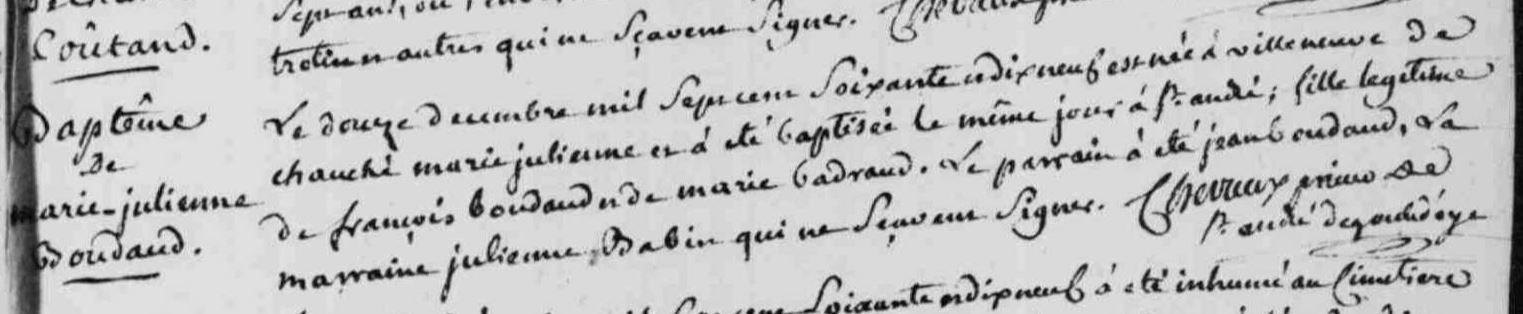 Coûtand.
trotin et autres qui ne sçavent signer.
Baptême
De
marie-julienne
Boudaud.
Le douze decembre mil sept cent soixante et dix neuf est née à villeneuve de
chauché marie julienne et à été baptisée le même jour à St. andré; fille legitime
de françois boudaud et de marie badraud. Le parrain à été jean boudaud, La
marraine julienne Babin qui ne sçavent signer. Chevreux prieur de
St. andré degouledöye
soixante et dix neuf à été inhumé au Cimetiere